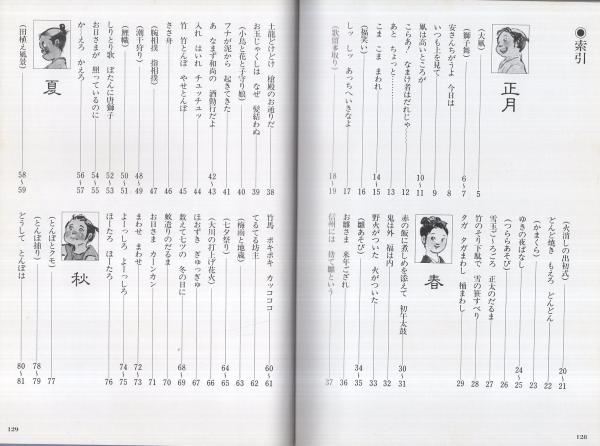 ●索引
正月
(大凧) 5
(獅子舞) 6〜7
安さんちがうよ 今日は 8
いつも上を見て 9
凧は高いところが 10〜11
こらあ！なまけ者はだれじゃ… 12
あと ちょっと… 13
こま こま まわれ 14〜15
(福笑い) 16
しッ しッ あっちへいきなよ 17
(歌留多取り) 18〜19
(火消しの出初式) 20〜21
どんど焼き もえろ どんどん 22
(かまくら) 23
ゆきの夜ばなし 24〜25
(つららあそび) 26
雪玉ごろごろ 正太のだるま 27
竹のそり下駄で 雪の笹すべり 28
タガ タガまわし 桶まわし 29
春
赤の飯に煮しめを添えて 初午太鼓 30〜31
鬼は外 福は内 32
野火がついた 火がついた 33
(雛あそび) 34〜35
お雛さま 来年ござれ 36
信州には 捨て雛という 37
土龍どけどけ 槍殿のお通りだ 38
お玉じゃくしは なぜ 髪結わぬ 39
(小鳥と花と子守り娘) 40
フナが泥から 起きてきた 41
あ なまず和尚の 酒勤行だよ 42〜43
入れ はいれ チュッチュッ 44
竹 竹とんぼ やせとんぼ 45
笹舟 46
(腕相撲 指相撲) 47
(潮干狩り) 48〜49
(鯉幟) 50〜51
しりとり歌 ぼたんに唐獅子 52〜53
お日さまが 照っているのに 54〜55
かーえろ かえろ 56〜57
夏
(田植え風景) 58〜59
竹馬 ポキポキ カッコココ 60〜61
てるてる坊主 62
(梅雨と地蔵) 63
(七夕祭り) 64〜65
(大川の打上げ花火) 66
ほおずき ぎゅっぎゅ 67
数えて七ツの 冬の日に 68〜69
蚊遣りのだるま 70
お日さま カーンカン 71
まわせ まわせ 72〜73
よーっしろ よーっしろ 74〜75
ほーたろ ほーたろ 76
秋
(とんぼとクモ) 77
(とんぼ捕り) 78〜79
どうして とんぼは 80〜81
129
128